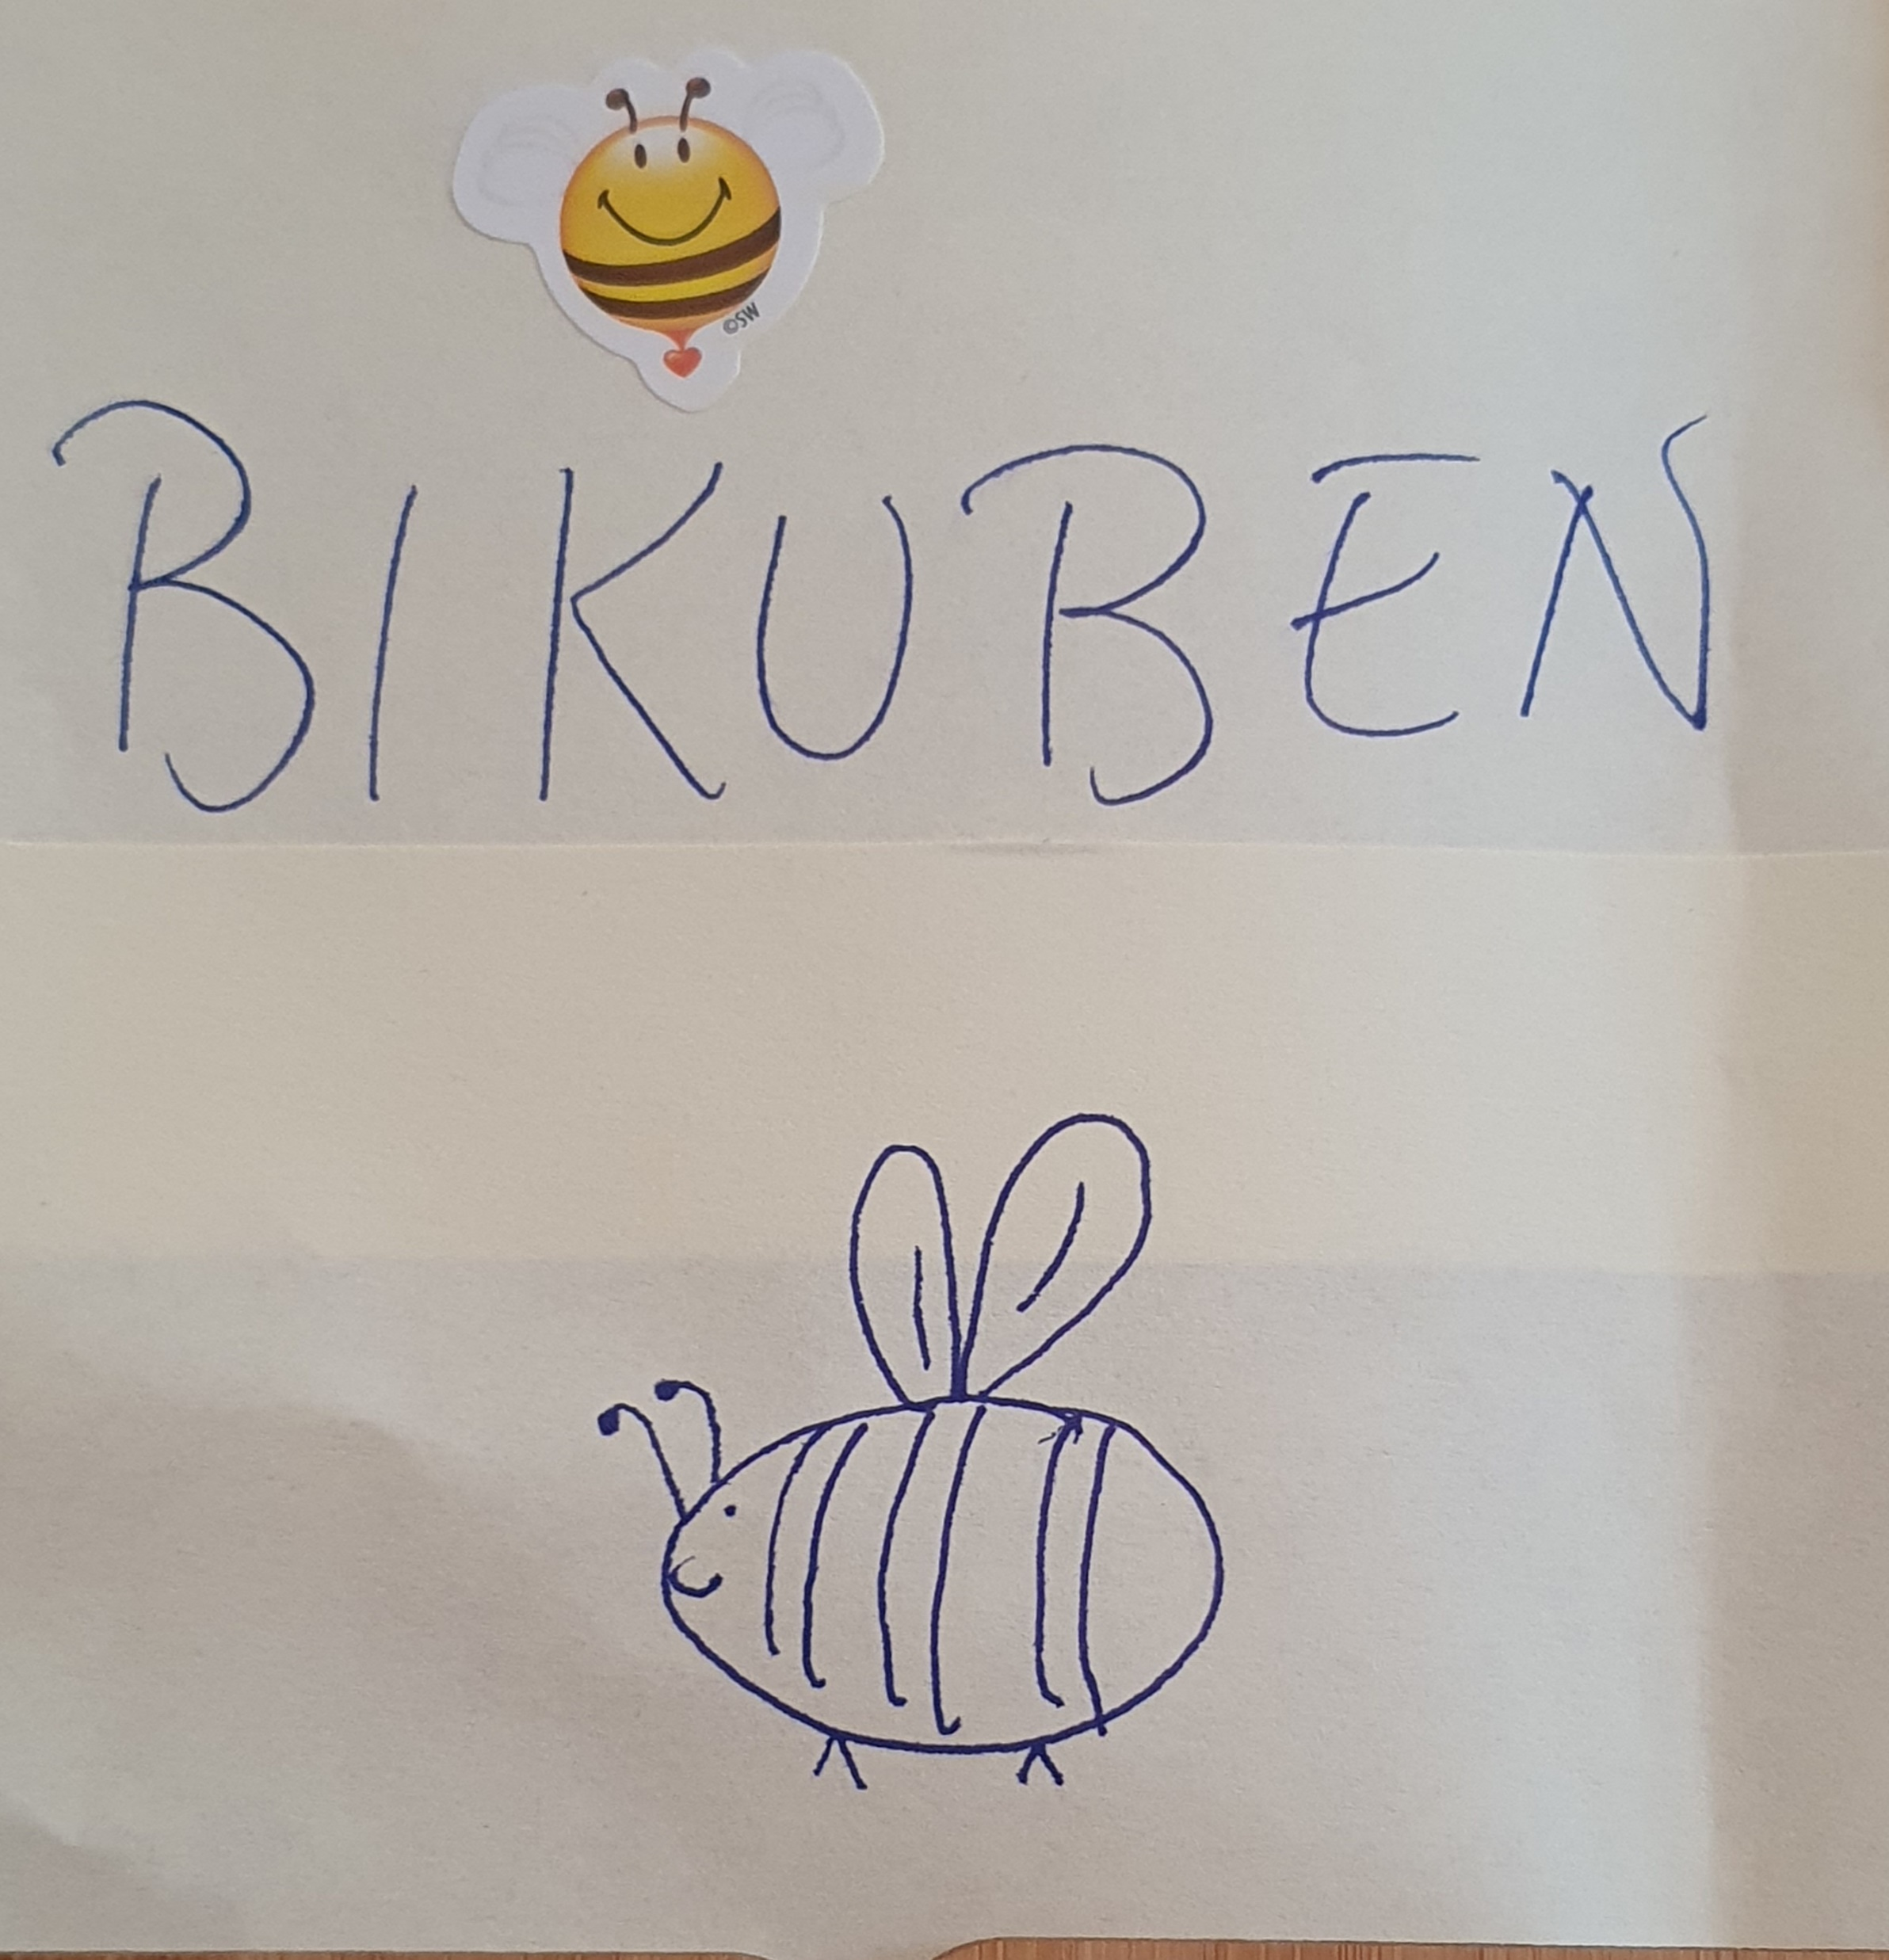 ©SW
BIKUBEN